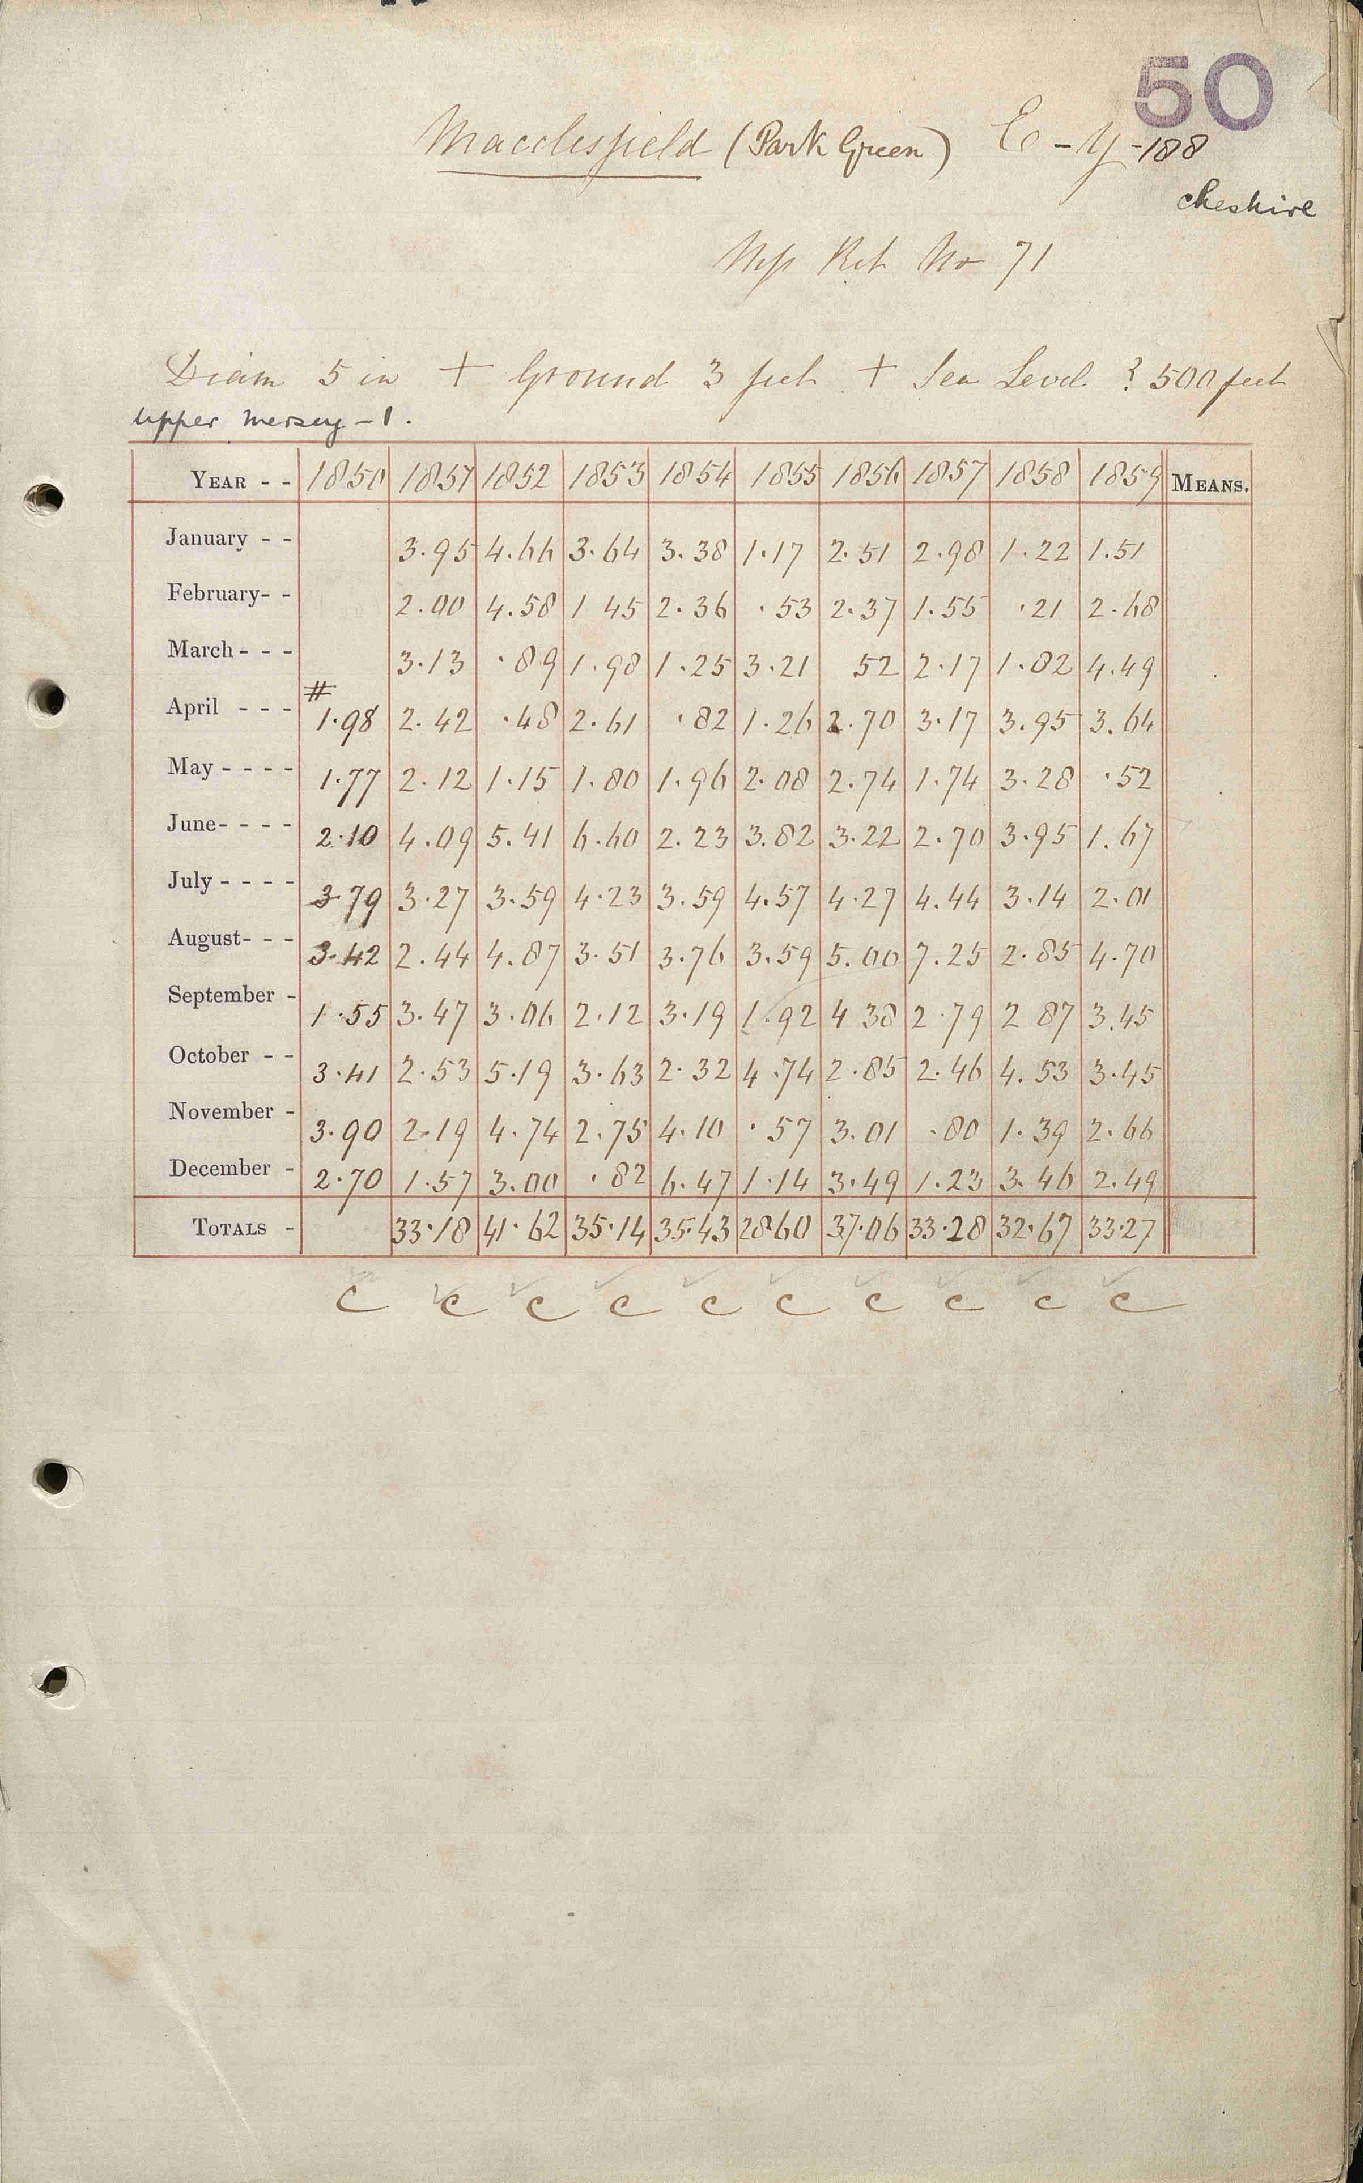 50
Macclesfield (Park Green) E - y - 188
Cheshire
Mss Ret No 71
Diam 5 in + Ground 3 feet + Sea Level ? 500 feet
Upper Mersey - 1.
YEAR - - 1850 1851 1852 1853 1854 1855 1856 1857 1858 1859 MEANS.
January - - 3.95 4.66 3.64 3.38 1.17 2.51 2.98 1.22 1.51
February- - 2.00 4.58 1 45 2.36 .53 2.37 1.55 .21 2.68
March - - - 3.13 .89 1.98 1.25 3.21 52 2.17 1.82 4.49
#
April - - - 1.98 2.42 .48 2.61 .82 1.26 2.70 3.17 3.95 3.64
May - - - - 1.77 2.12 1.15 1.80 1.96 2.08 2.74 1.74 3.28 .52
June- - - - 2.10 4.09 5.41 6.60 2.23 3.82 3.22 2.70 3.95 1.67
July - - - - 3.79 3.27 3.59 4.23 3.59 4.57 4.27 4.44 3.14 2.01
August- - - 3.42 2.44 4.87 3.51 3.76 3.59 5.00 7.25 2.85 4.70
September - 1.55 3.47 3.06 2.12 3.19 1.92 4 38 2.79 2 87 3.45
October - - 3.41 2.53 5.19 3.63 2.32 4.74 2.85 2.46 4.53 3.45
November - 3.90 2.19 4.74 2.75 4.10 .57 3.01 .80 1.39 2.66
December - 2.70 1.57 3.00 .82 6.47 1.14 3.49 1.23 3.46 2.49
TOTALS - 33.18 41.62 35.14 35.43 28.60 37.06 33.28 32.67 33.27
C C C C C C C C C C